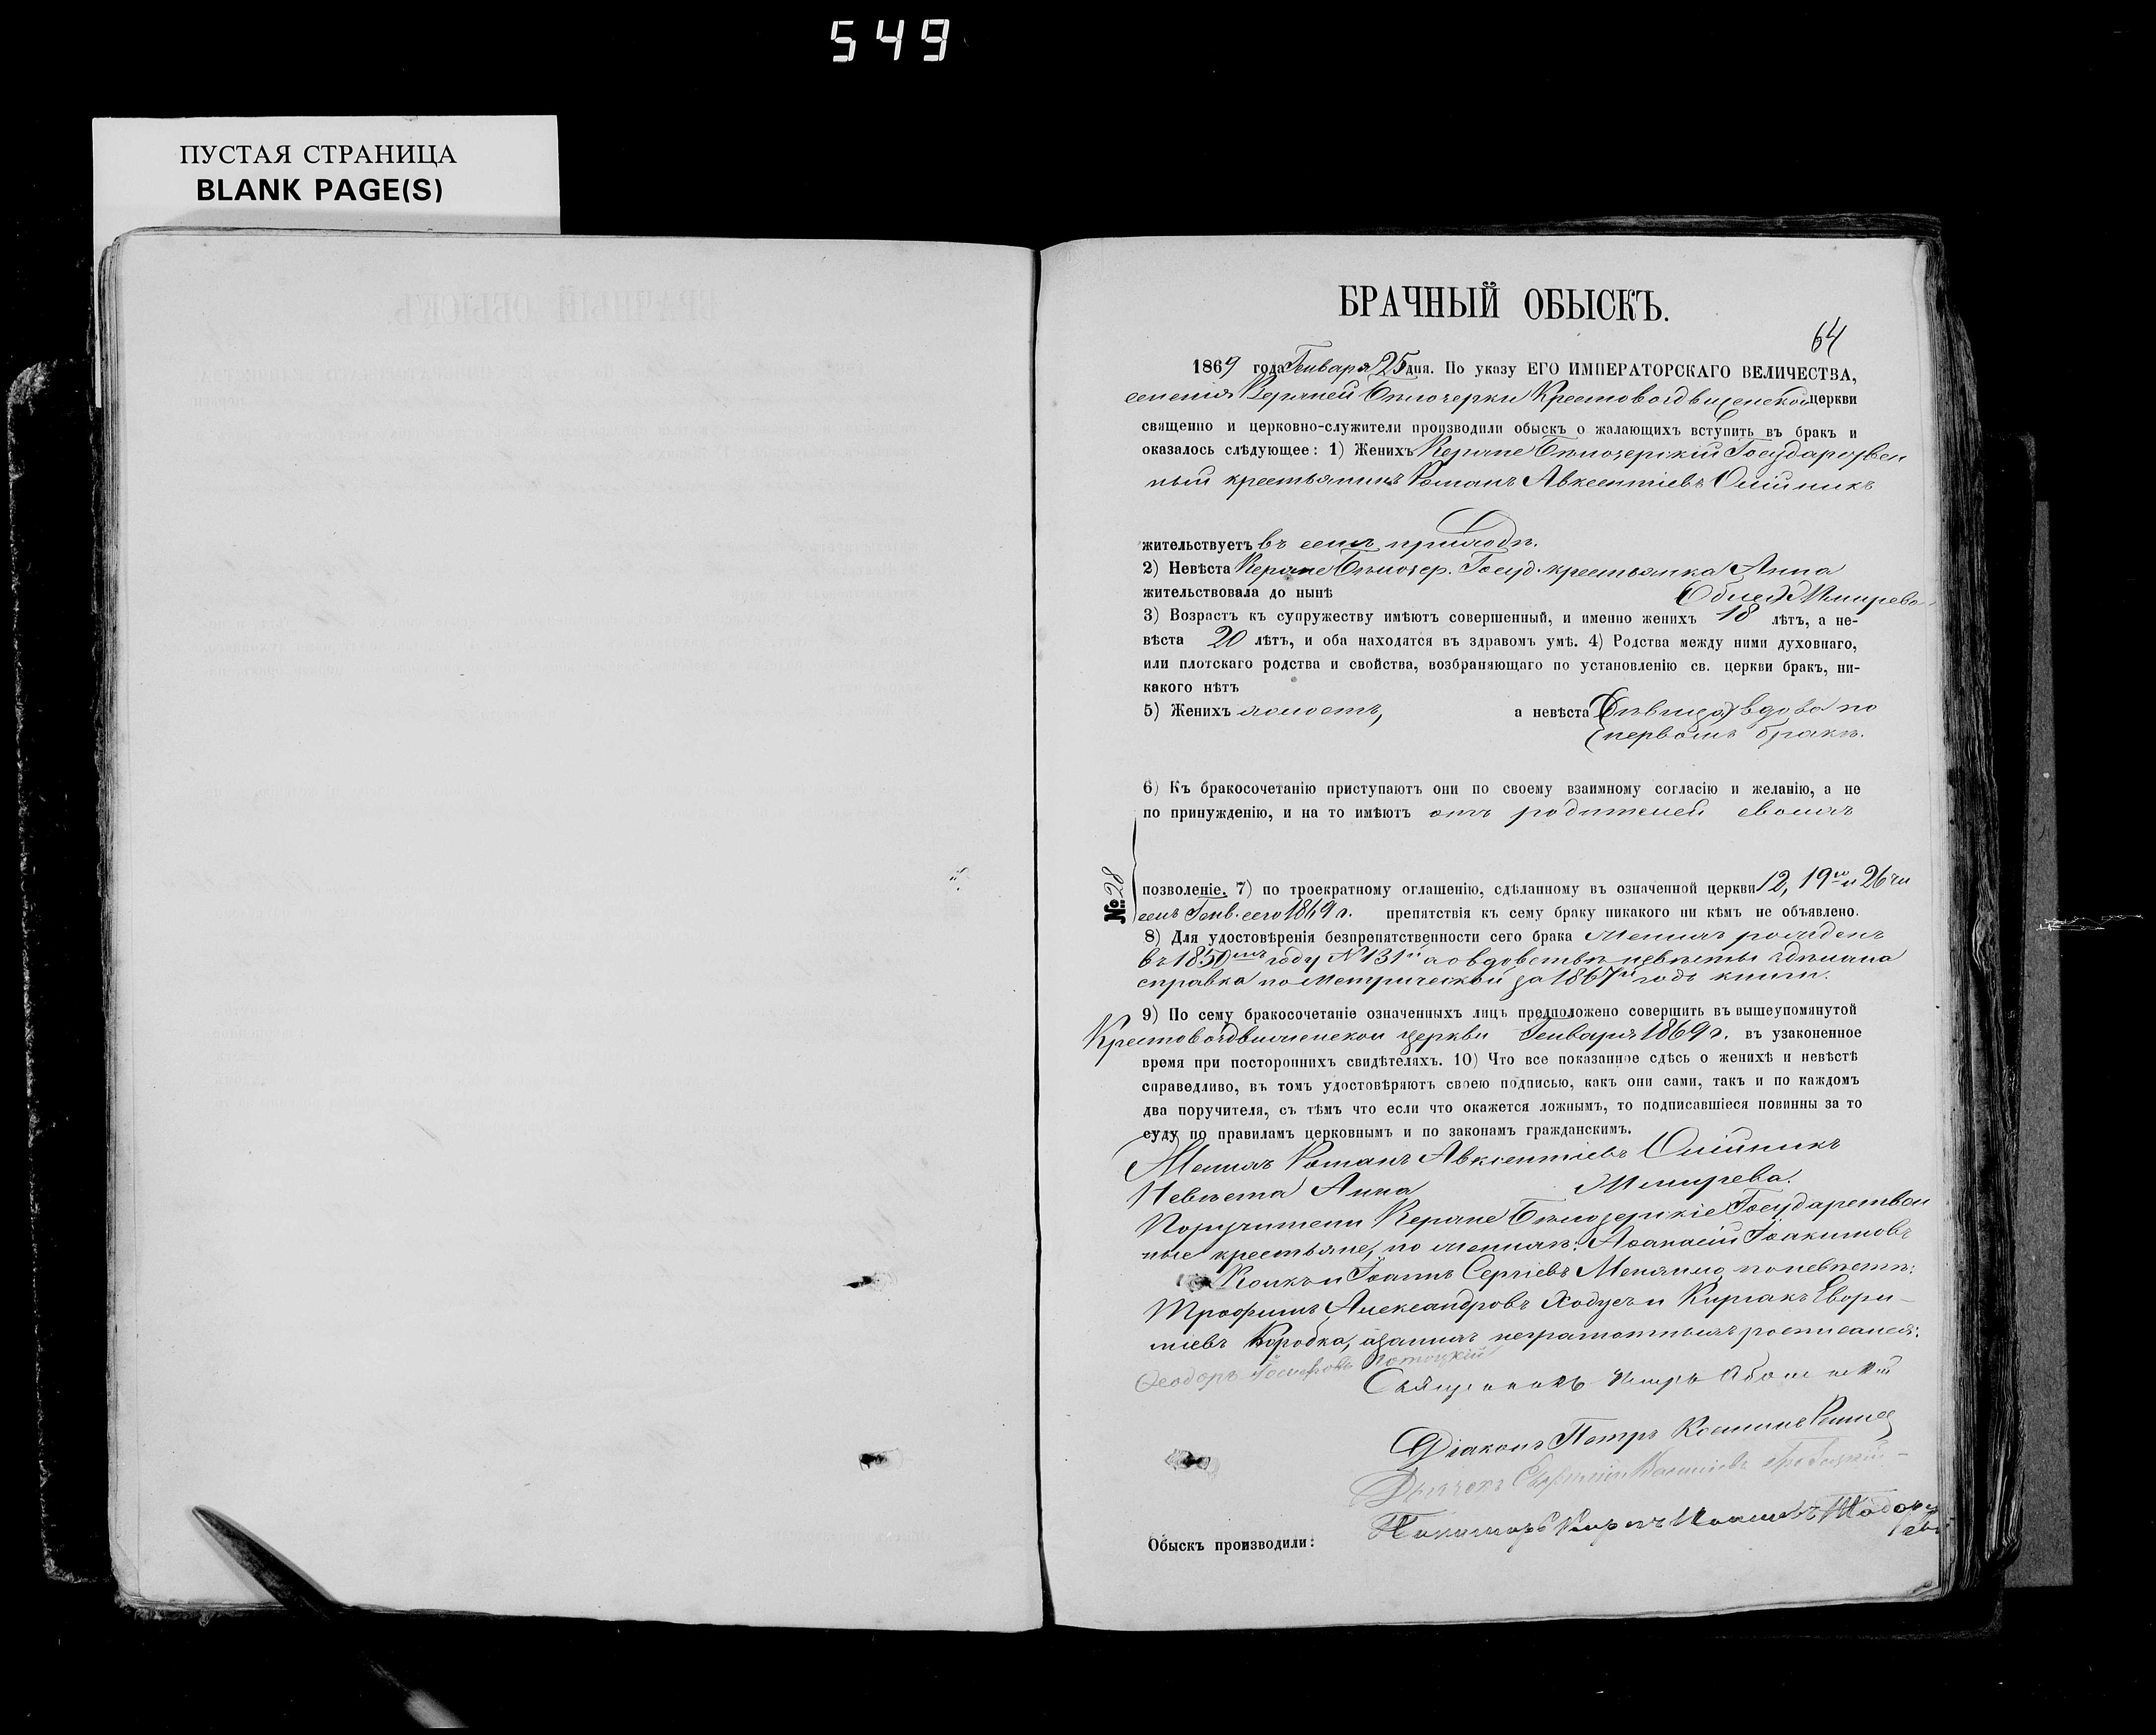 549
ПУСТАЯ СТРАНИЦА
BLANK PAGE(S)
БРАЧНЫЙ ОБЫСКЪ.
64
1869 года Генваря 25 дня. По указу ЕГО ИМПЕРАТОРСКАГО ВЕЛИЧЕСТВА,
селенія Бѣлозерки Крестовоздвиженской церкви
священно и церковно-служители производили обыскъ о жалающихъ вступить въ бракъ и
оказалось слѣдующее: 1) Женихъ Бѣлозерскій Государствен
ный крестьянинъ Романъ Авксентіевъ Олійникъ
жительствуетъ въ семъ приходѣ.
2) Невѣста Бѣлозер. Госуд. крестьянка Анна
жительствовала до нынѣ
3) Возрастъ къ супружеству имѣютъ совершенный, и именно женихъ 18 лѣтъ, а не-
вѣста 20 лѣтъ, и оба находятся въ здравомъ умѣ. 4) Родства между ними духовнаго,
или плотскаго родства и свойства, возбраняющаго по установленію св. церкви бракъ, ни-
какого нѣтъ
5) Женихъ холостъ, а невѣста вдова по
первомъ бракѣ.
6) Къ бракосочетанію приступаютъ они по своему взаимному согласію и желанію, а не
по принужденію, и на то имѣютъ отъ родителей своихъ
№ 28
позволеніе. 7) по троекратному оглашенію, сдѣланному въ означенной церкви 12, 19го и 26 чи
селъ Генв. сего 1869 г. препятствія къ сему браку никакого ни кѣмъ не объявлено.
8) Для удостовѣренія безпрепятственности сего брака Женихъ рожденъ
въ 1850мъ году № 131й а о вдовствѣ невѣсты здѣлана
справка по Метрической за 1867й годъ книги.
9) По сему бракосочетаніе означенныхъ лицъ предположено совершить въ вышеупомянутой
Крестовоздвиженской церкви Генваря 1869 г. въ узаконенное
время при постороннихъ свидѣтеляхъ. 10) Что все показанное сдѣсь о женихѣ и невѣстѣ
справедливо, въ томъ удостовѣряютъ своею подписью, какъ они сами, такъ и по каждомъ
два поручителя, съ тѣмъ что если что окажется ложнымъ, то подписавшіеся повинны за то
суду по правиламъ церковнымъ и по законамъ гражданскимъ.
Женихъ Романъ Авксентіевъ Олійникъ
Невѣста Анна
Поручители Бѣлозерскіе Государствен
ные крестьяне, по женихѣ: Аѳанасій Іоакимовъ
Іоаннъ Сергіевъ по невѣстѣ:
Трофимъ Александровъ Ходусъ и Киріакъ Евфи-
міевъ Коробка, а за нихъ неграмотныхъ росписался:
Ѳеодоръ Іосифовъ
Священникъ
Діаконъ Петръ
Дьячекъ Евфимій Василіевъ
Пономарь
Обыскъ производили: